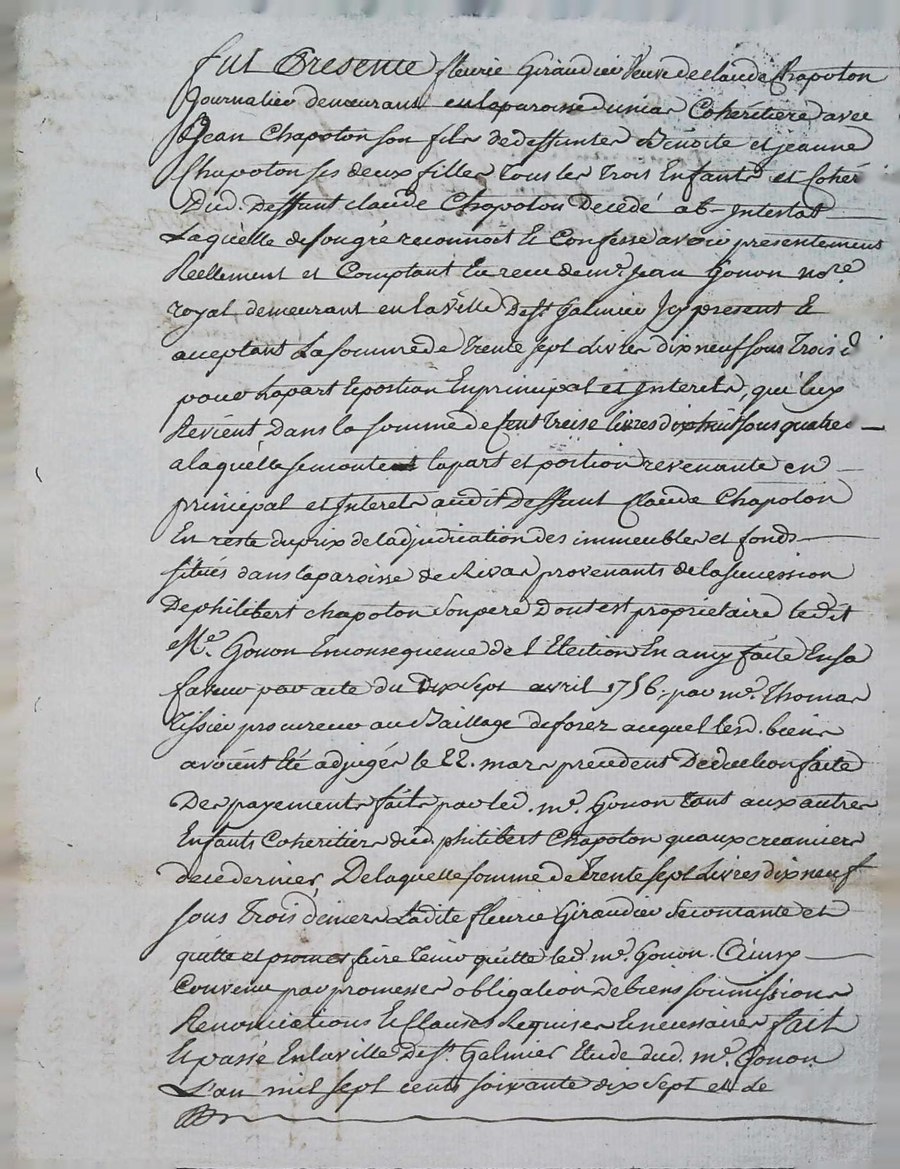 fut Presente fleurie Giraudier Veuve de claude Chapoton
Journalier demeurant en la paroisse de rivas Coheritiere avec
Jean Chapoton son fils de deffuntes Benoite et jeanne
Chapoton ses deux filles tous les trois Enfants et Coher
Dud. Deffunt claude Chapoton Decedé ab-intestat
Laquelle de son gré reconnoit Et Confesse avoir presentement
Réellement et Comptant Eu receu de me. Jean Gonon nore
royal demeurant en la ville De st. Galmier Icy present Et
aceptant La somme de trente sept livres dix neuf sous trois d
pour sa part et portion En principal et Interets, qui luy
Revient Dans la somme de Cent treise livres dix huit sous quatre
a laquelle se monte la part et portion revenante en
principal et Interets audit Deffunt Claude Chapoton
En reste du prix de ladjudication des immeubles et fonds
situés dans la paroisse de Rivas provenants de la sucession
De philibert chapoton son pere Dont est proprietaire ledit
Me. Gonon En consequence de l'Election En amy faite En sa
faveur par acte du Dix Sept avril 1756. par me. Thomas
tissier procureur au Bailliage de forez auquel lesd. biens
avoient été adjugés le 22. mars precedent Deduction faite
Des payements faits par led. me. Gonon tant aux autres
Enfants Coheritiers dud. philibert Chapoton quaux creanciers
de ce dernier, De laquelle somme de trente sept Livres dix neuf
sous trois deniers Ladite fleurie Giraudier se contante et
quitte et promet faire tenir quitte led. me. Gonon. Ainsy
Convenu par promesses obligation De biens soumissions
Renonciations Et Clauses Requises Et necessaires fait
Et passé En la ville De st. Galmier Etude dud. me. Gonon
L'an mil sept cent soixante dix sept et le